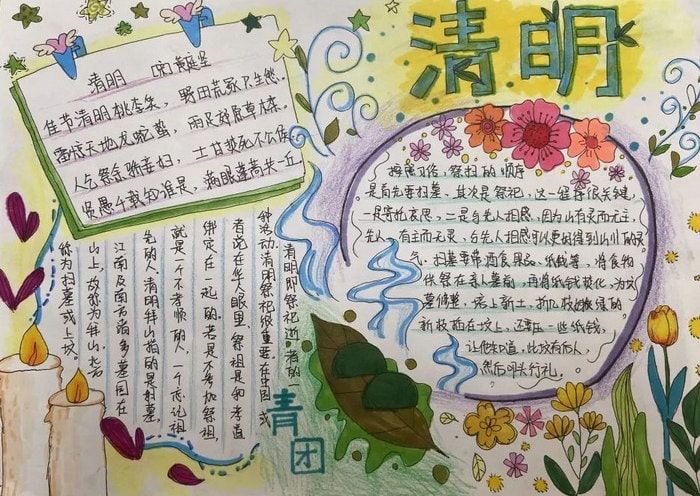 清明
清明 [宋]黄庭坚
佳节清明桃李笑，野田荒冢只生愁。
雷惊天地龙蛇蛰，雨足郊原草木柔。
人乞祭余骄妾妇，士甘焚死不公侯
贤愚千载知谁是，满眼蓬蒿共一丘
按照习俗，祭扫的顺序
是首先要扫墓，其次是祭祀，这一程序很关键，
一是寄托哀思，二是与先人相感，因为山有灵而无主，
先人有主而无灵，与先人相感可以更好得到山川的灵
气。扫墓要带酒食果品、纸钱等，将食物
供祭在亲人墓前，再将纸钱焚化，为坟
墓修整，培上新土，折几枝嫩绿的
新枝插在坟上，还要压一些纸钱，
让他人知道，此坟有后人，
然后叩头行礼。
清明即祭祀逝者的一
种活动，清明祭祀很重要。在中国，或
者说在华人眼里，祭祖是和孝道
绑定在一起的，若是不参加祭祖，
就是一个不孝顺的人，一个忘记祖
先的人。清明拜山指的是对墓，
江南及南方诸多墓园在
山上，故称为拜山，北方
称为扫墓或上坟。
青
团